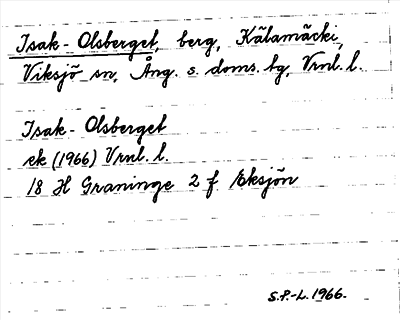 Isak-Olsberget, berg, Kälamäcki,
Viksjö sn, Ång. s. doms. lg, Vrnl. l.
Isak-Olsberget
ek (1966) Vrnl. l.
18 H Graninge 2 f Eksjön
S.P.-L. 1966.